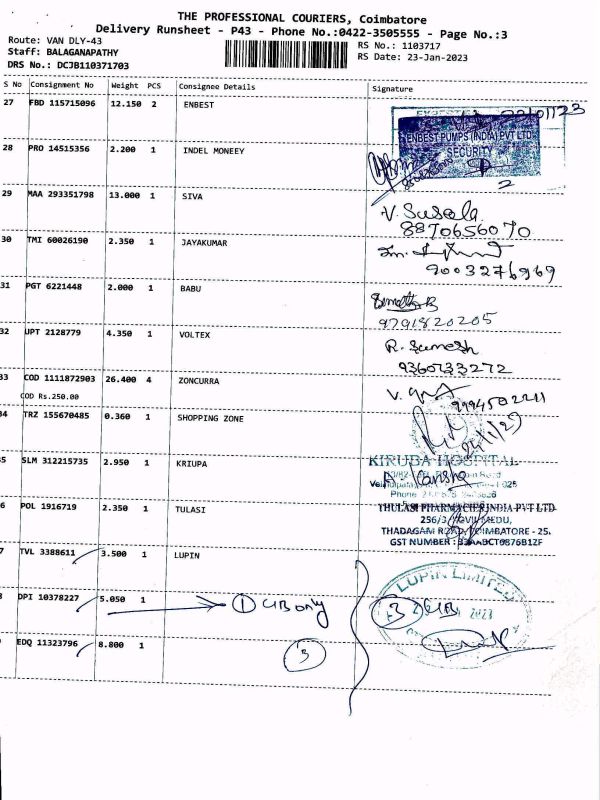 THE PROFESSIONAL COURIERS, Coimbatore
Delivery Runsheet - P43 - Phone No.:0422-3505555 - Page No.:3
Route: VAN DLY-43
Staff: BALAGANAPATHY
DRS No.: DCJB110371703
RS No.: 1103717
RS Date: 23-Jan-2023
S No Consignment No Weight PCS Consignee Details Signature
27 FBD 115715096 12.150 2 ENBEST
ENBEST PUMPS (INDIA) PVT LTD
SECURITY
28 PRO 14515356 2.200 1 INDEL MONEEY
2
29 MAA 293351798 13.000 1 SIVA V. Susela
8870656070
30 TMI 60026190 2.350 1 JAYAKUMAR
9003276969
31 PGT 6221448 2.000 1 BABU
9791820205
32 UPT 2128779 4.350 1 VOLTEX R. Sumesh
9360733272
33 COD 1111872903 26.400 4 ZONCURRA V.
COD Rs.250.00
34 TRZ 155670485 0.360 1 SHOPPING ZONE
5 SLM 312215735 2.950 1 KRIUPA KIRUBA HOSPITAL
Phone
6 POL 1916719 2.350 1 TULASI THULASI PHARMACIES INDIA PVT LTD
256/3,
THADAGAM ROAD, COIMBATORE - 25.
GST NUMBER : 33AABCT0876B1ZF
7 TVL 3388611 3.500 1 LUPIN
LUPIN LIMITED
8 DPI 10378227 5.050 1 1 only 3 2023
9 EDQ 11323796 8.800 1 3